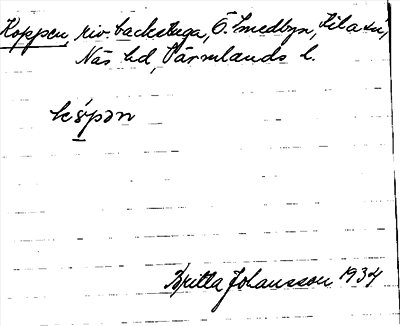 Koppen, riv. backstuga, Ö. Smedbyn, Kila sn,
Näs hd, Värmlands l.
kópən
Britta Johansson 1934